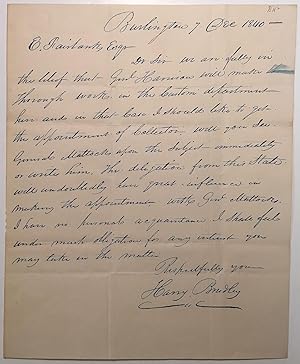 Burlington 7 Dec 1840 —
E. Fairbanks Esqr
Dr Sir we are fully in
the belief that Genl Harrison will make
through work in the Custom department
here and in that Case I should like to get
the appointment of Collector will you see
Genral Mattocks upon the subject immediately
or write him, The delegation from this State
will undoubtedly have great influence in
making the appointment with Genl Mattocks
I have no personal acquaintance I shall feel
under much obligation for any interest you
may take in the matter
Respectfully yours
Harry Bradley